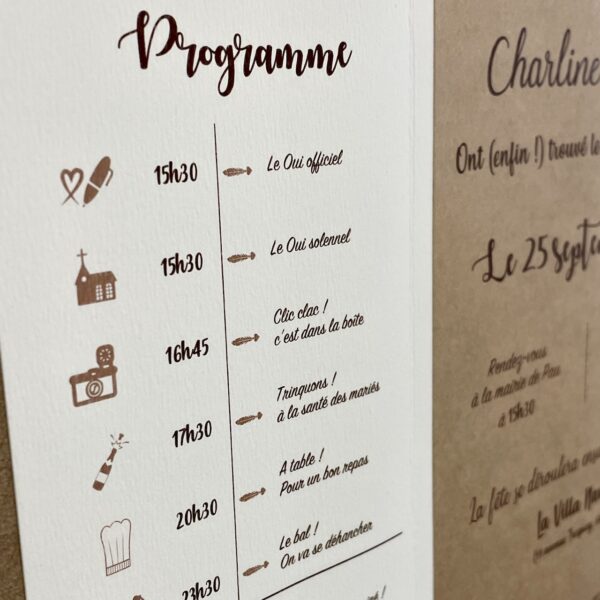 Programme
15h30
Le Oui officiel
15h30
Le Oui solennel
16h45
Clic clac !
c'est dans la boîte
17h30
Trinquons !
à la santé des mariés
20h30
A table !
Pour un bon repas
23h30
Le bal !
On va se déhancher
Charline
Ont (enfin !) trouvé le
Le 25 septe
Rendez-vous
à la mairie de Pau
à 15h30
La fête se déroulera
La Villa